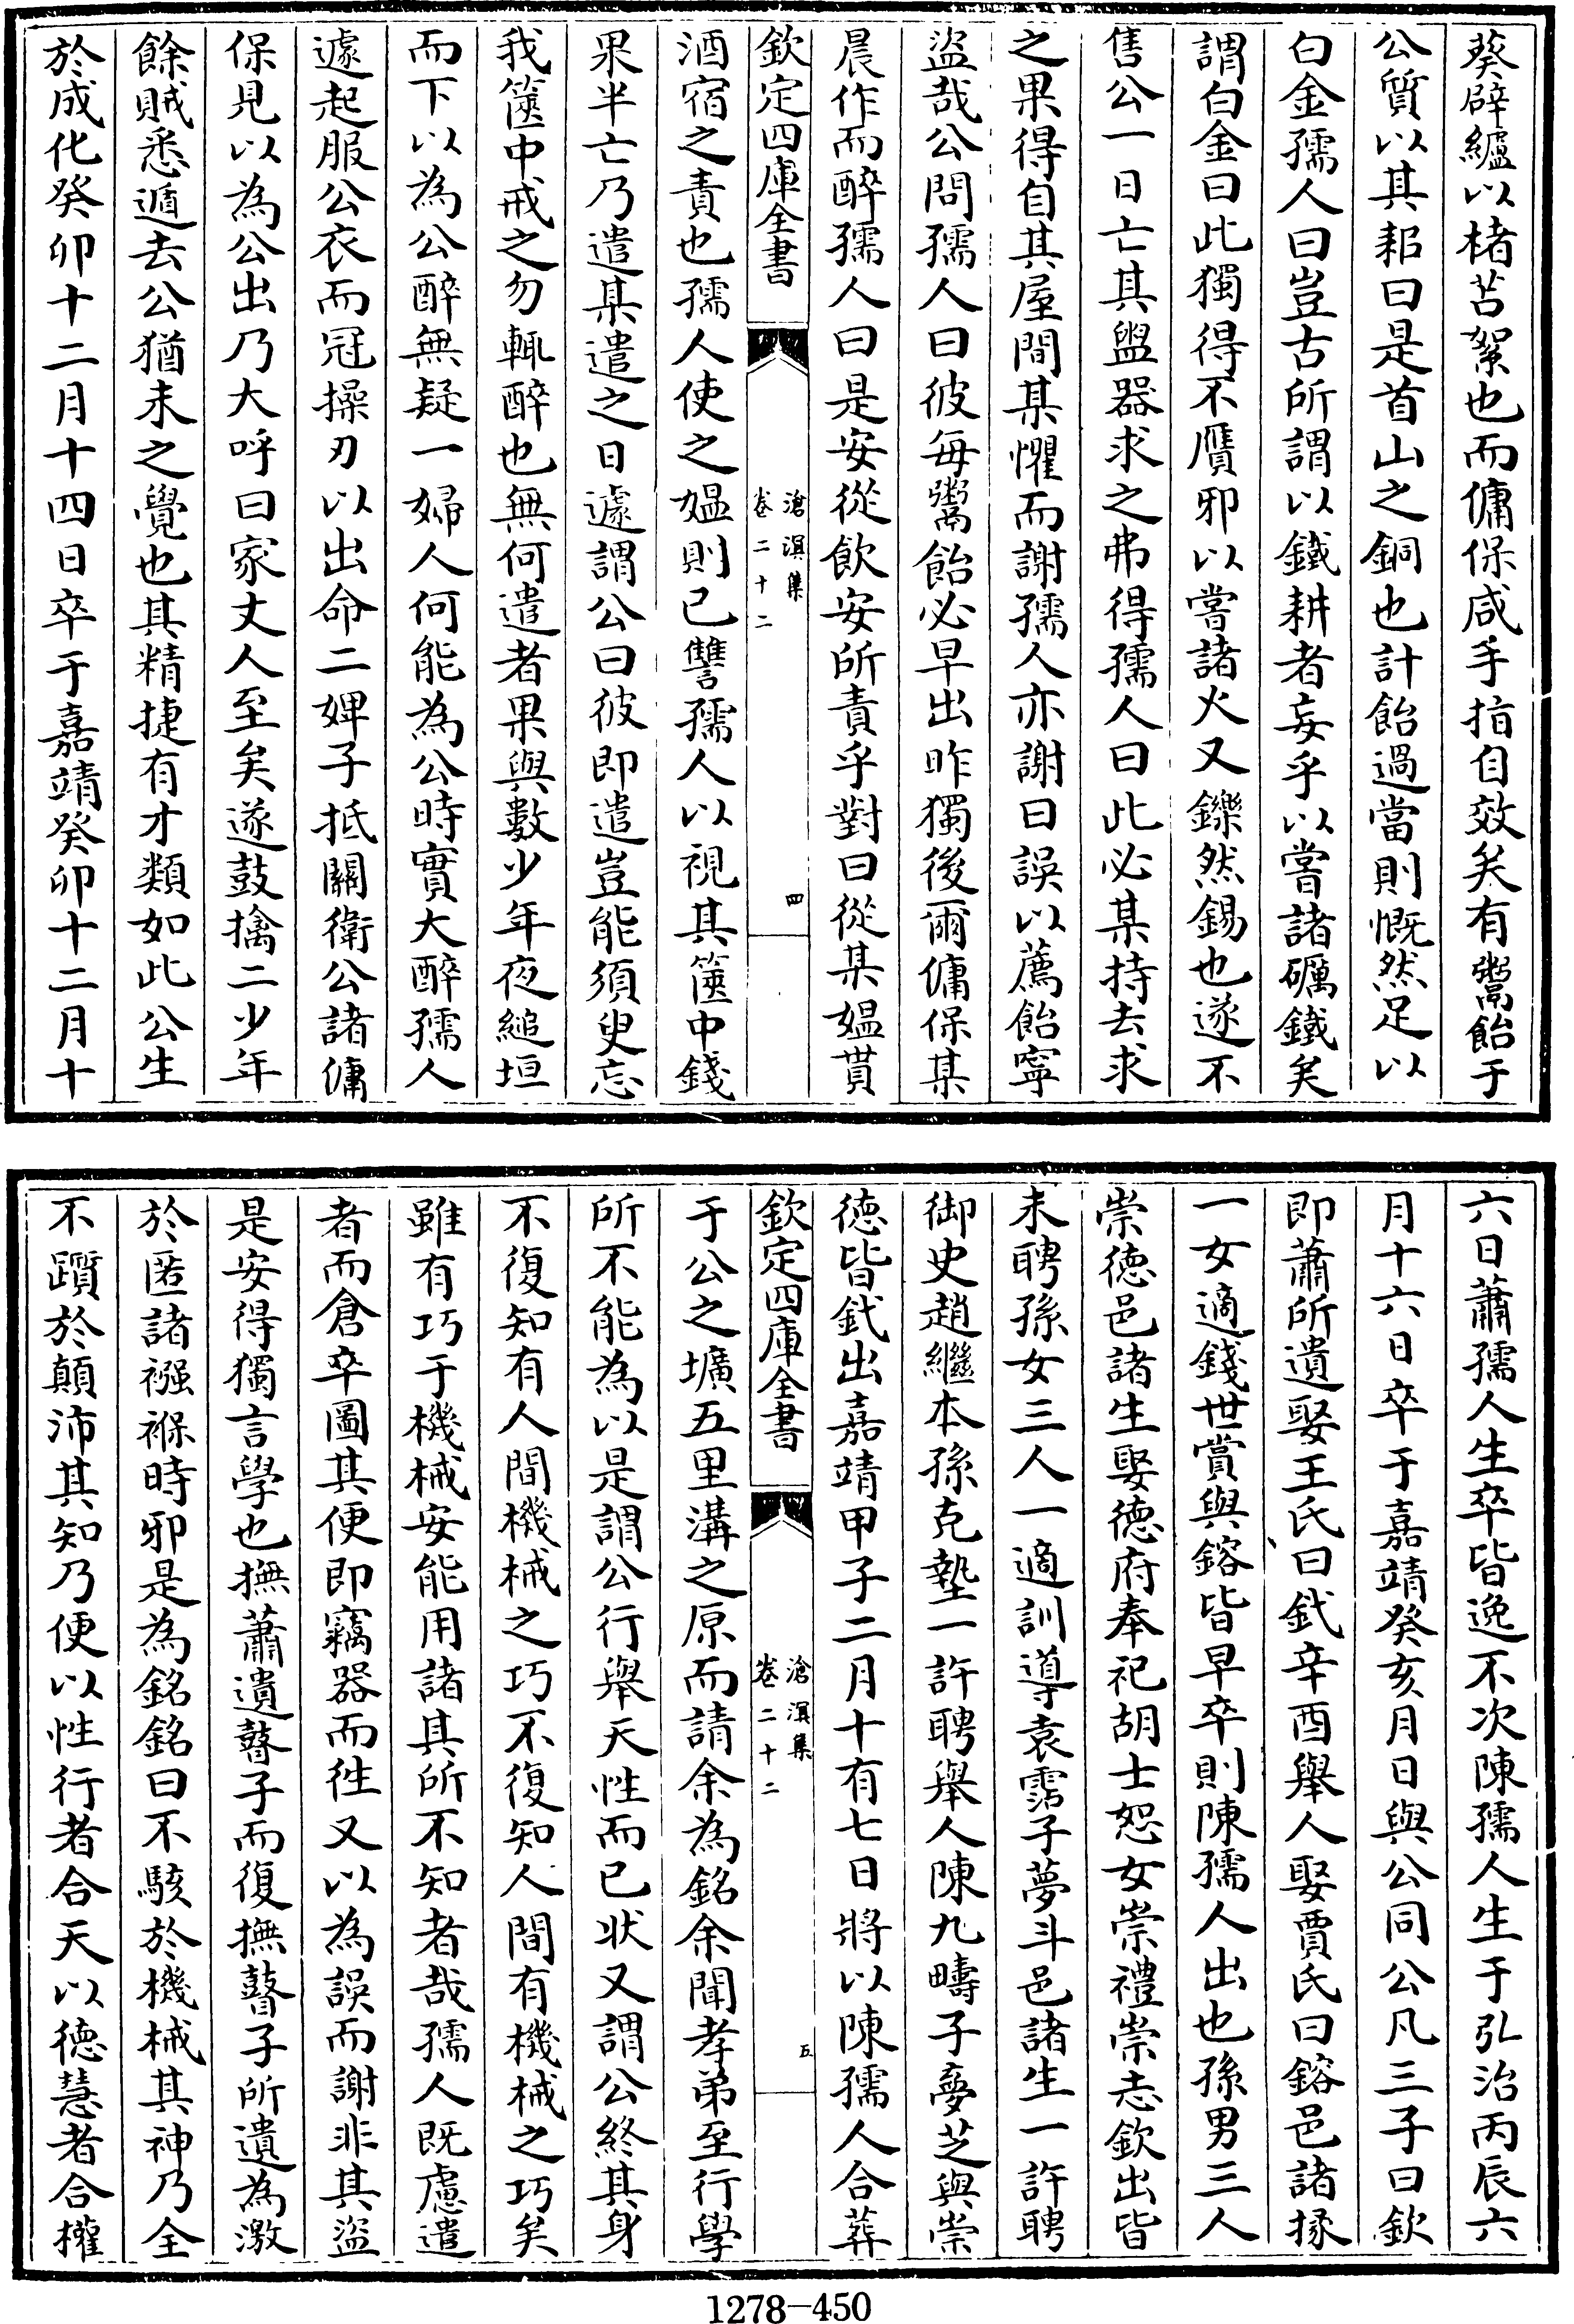 葵辟纑以楮苫絮也而傭保咸手指自效矣有鬻飴于
公質以其耜曰是首山之銅也計飴過當則慨然足以
白金孺人曰豈古所謂以鐵耕者妄乎以嘗諸礪鐵矣
謂白金曰此獨得不贋邪以嘗諸火又鑠然錫也遂不
售公一日亡其盥器求之弗得孺人曰此必某持去求
之果得自其屋間某懼而謝孺人亦謝曰誤以薦飴寧
盜哉公問孺人曰彼每鬻飴必早出昨獨後爾傭保某
晨作而醉孺人曰是安從飲安所責乎對曰從某媼貰
欽定四庫全書
滄溟集
卷二十二
四
酒宿之責也孺人使之媼則已讐孺人以視其篋中錢
果半亡乃遣某遣之日遽謂公曰彼即遣豈能須臾忘
我篋中戒之勿輒醉也無何遣者果與數少年夜縋垣
而下以為公醉無疑一婦人何能為公時實大醉孺人
遽起服公衣而冠操刃以出命二婢子抵關衛公諸傭
保見以為公出乃大呼曰家丈人至矣遂鼓擒二少年
餘賊悉遁去公猶未之覺也其精捷有才類如此公生
於成化癸卯十二月十四日卒于嘉靖癸卯十二月十
六日蕭孺人生卒皆逸不次陳孺人生于弘治丙辰六
月十六日卒于嘉靖癸亥月日與公同公凡三子曰欽
即蕭所遺娶王氏曰鉽辛酉舉人娶賈氏曰鎔邑諸掾
一女適錢世賞與鎔皆早卒則陳孺人出也孫男三人
崇德邑諸生娶德府奉祀胡士恕女崇禮崇志欽出皆
未聘孫女三人一適訓導袁霑子夢斗邑諸生一許聘
御史趙繼本孫克塾一許聘舉人陳九疇子夢芝與崇
德皆鉽出嘉靖甲子二月十有七日將以陳孺人合葬
欽定四庫全書
滄溟集
卷二十二
五
于公之壙五里溝之原而請余為銘余聞孝弟至行學
所不能為以是謂公行舉天性而已狀又謂公終其身
不復知有人間機械之巧不復知人間有機械之巧矣
雖有巧于機械安能用諸其所不知者哉孺人既慮遣
者而倉卒圖其便即竊器而徃又以為誤而謝非其盜
是安得獨言學也撫蕭遺瞽子而復撫瞽子所遺為激
於匿諸襁褓時邪是為銘銘曰不駭於機械其神乃全
不躓於顛沛其知乃便以性行者合天以德慧者合權
1278—450